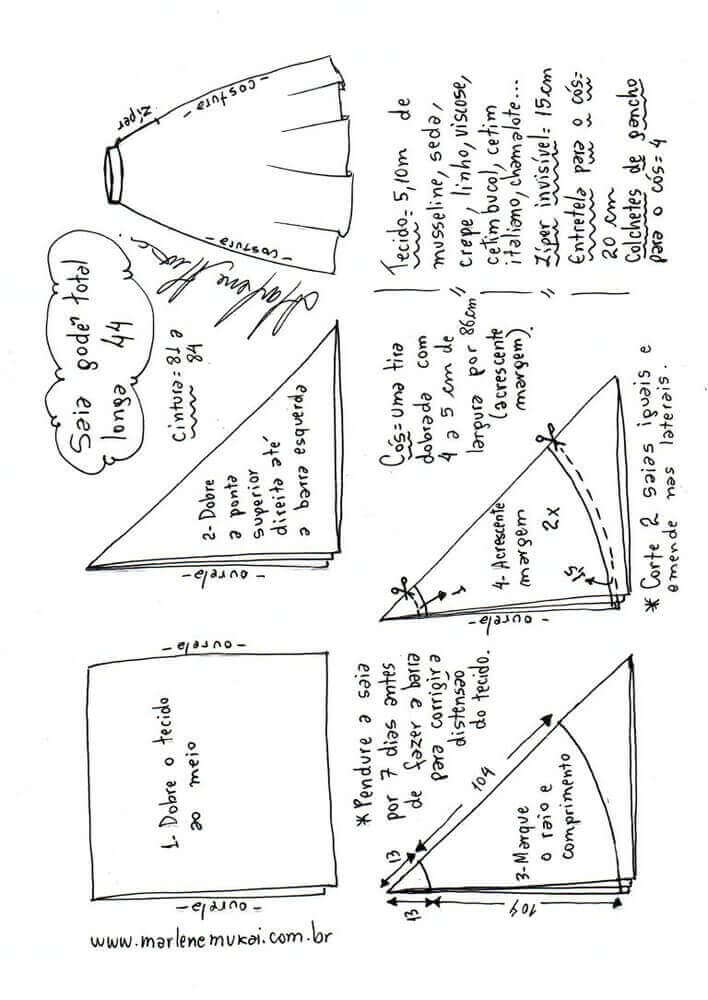 www.marlenemukai.com.br
- ourela -
1- Dobre o tecido
ao meio
- ourela -
- ourela -
2- Dobre
a ponta
superior
direita até
a barra esquerda
Saia godê total
longa 44
cintura =
84
zíper
- costura -
- costura -
*Pendure a saia
por 7 dias antes
de fazer a barra
para corrigir a
distensão
do tecido.
13
104
13
104
3- Marque
o raio e
comprimento
- ourela -
1
1,5
4- Acrescente
margem
2x
* Corte 2 saias iguais e
emende nas laterais.
Cós = uma tira
dobrada com
4 a 5 cm de
largura por 86cm
(acrescente
margem).
Tecido = 5,10m de
musseline, seda,
crepe, linho, viscose,
cetim bucol, cetim
italiano, chamalote...
Zíper invisível = 15cm
Entretela para o cós =
20 cm
Colchetes de gancho
para o cós = 4